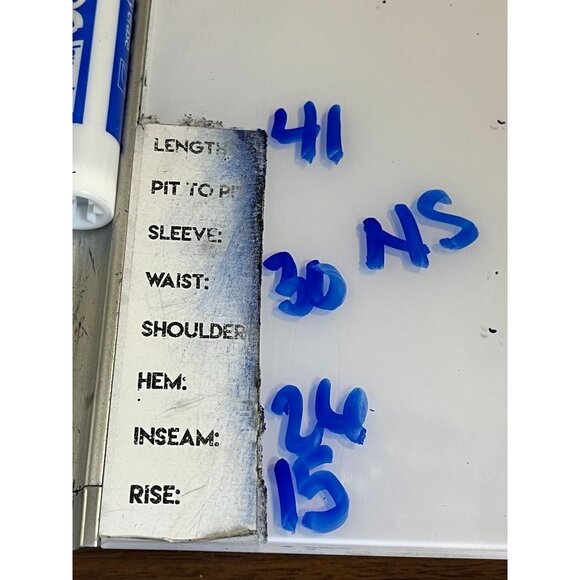 LENGTH 41
PIT TO PI
SLEEVE: NS
WAIST: 30
SHOULDER
HEM:
INSEAM: 24
RISE: 15